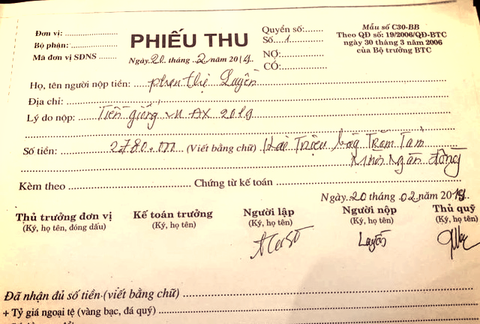 Đơn vị:
Bộ phận:
Mã đơn vị SDNS
PHIẾU THU
Ngày 20 tháng 2 năm 2014
Quyển số:
Số: 1
NỢ:
CÓ:
Mẫu số C30-BB
Theo QĐ số: 19/2006/QĐ-BTC
ngày 30 tháng 3 năm 2006
của Bộ trưởng BTC
Họ, tên người nộp tiền: Phan Thị Luyến
Địa chỉ:
Lý do nộp: Tiền giống
Số tiền: 2780.000 (Viết bằng chữ) Hai Triệu bảy Trăm Tám
Mươi Ngàn đồng
Kèm theo Chứng từ kế toán
Ngày 20 tháng 02 năm
Thủ trưởng đơn vị
(Ký, họ tên, đóng dấu)
Kế toán trưởng
(Ký, họ tên)
Người lập
(Ký, họ tên)
Người nộp
(Ký, họ tên)
Thủ quỹ
(Ký, họ tên)
Luyến
Đã nhận đủ số tiền (viết bằng chữ)
+ Tỷ giá ngoại tệ (vàng bạc, đá quý)